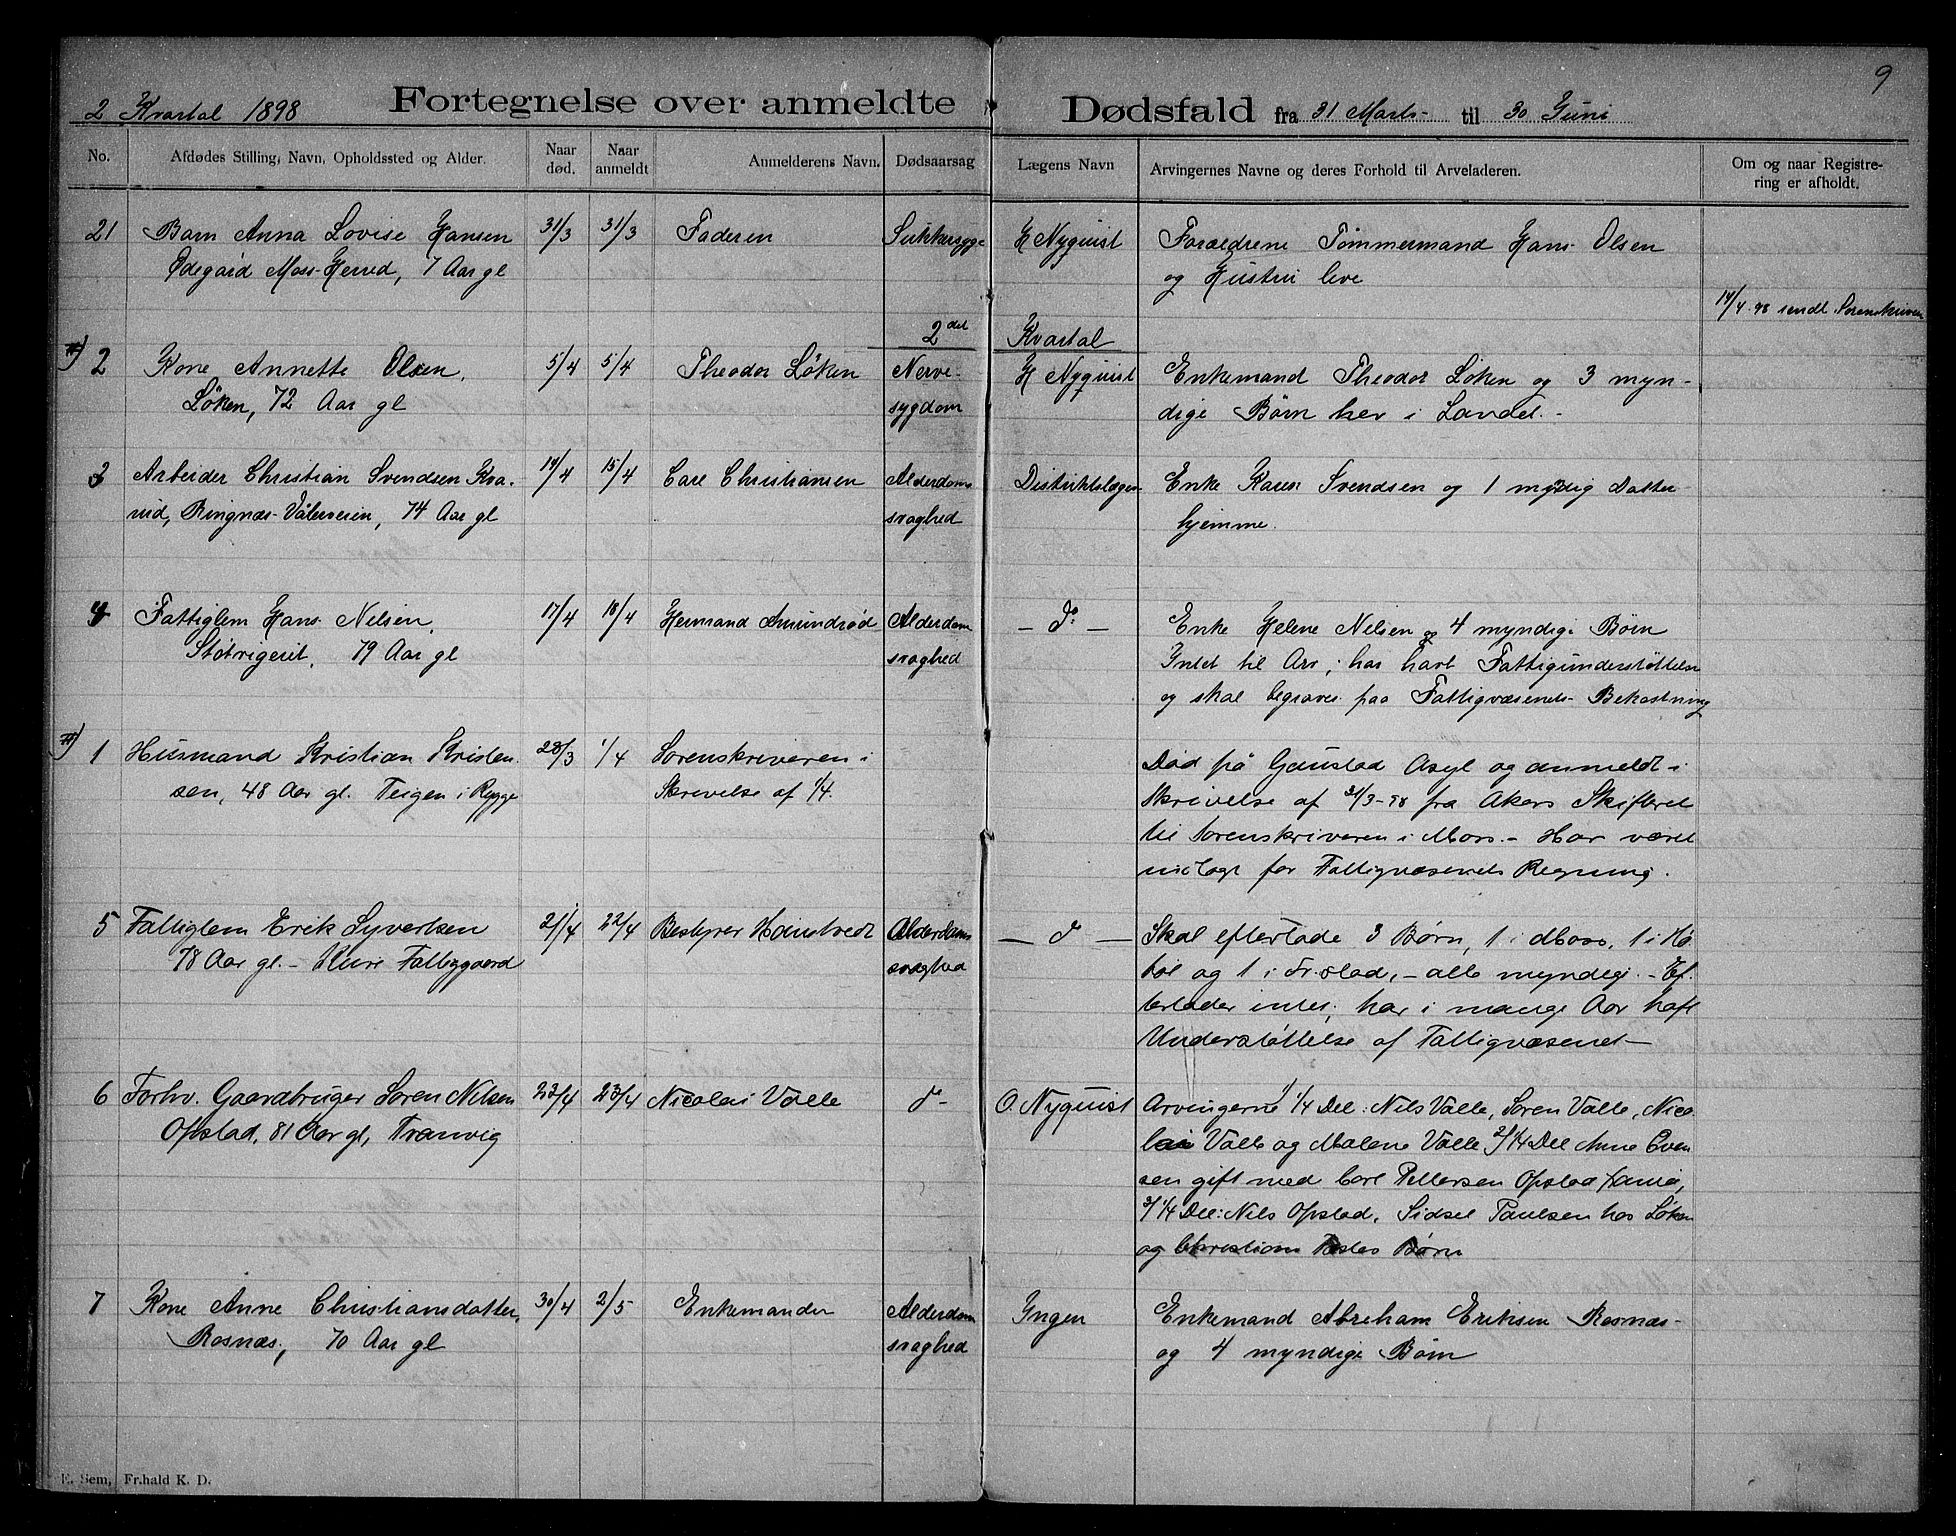 9
2 Kvartal 1898 Fortegnelse over anmeldte Dødsfald fra 31 Marts til 30 Juni
No. Afdødes Stilling, Navn, Opholdssted og Alder. Naar død. Naar anmeldt Anmelderens Navn. Dødsaarsag Lægens Navn Arvingernes Navne og deres Forhold til Arveladeren. Om og naar Registrering er afholdt.
21 Barn Anna Lovise Hansen 31/3 31/3 Faderen Sukkersyge H Nyquist Forældrene Tømmermand Hans Olsen
Ødegård Moss-Herred, 7 Aar gl og Hustru leve
14/4 98 sendt Sorenskriven
2det Kvartal
#) 2 Kone Annette Olsen, 5/4 5/4 Theodor Løken Nerve- H Nyquist Enkemand Theodor Løken og 3 myn-
Løken, 72 Aar gl sygdom dige Børn her i Landet.
3 Arbeider Christian Svendsen Kva- 14/4 15/4 Carl Christiansen Alderdoms Distriktslægen Enke Karen Svendsen og 1 myndig Datter
rud, Ringnæs-Vålerveien, 74 Aar gl svaghed hjemme.
4 Fattiglem Hans Nilsen, 17/4 18/4 Hermand Amundrød Alderdom - do - Enke Helene Nilsen og 4 myndige Børn
79 Aar gl svaghed Intet til Arv, har havt Fattigunderstøttelse
og skal begraves paa Fattigvæsenets Bekostning
#) 1 Husmand Kristian Kristen- 28/3 1/4 Sorenskriveren i Død på Gaustad Asyl og anmeldt i
sen, 48 Aar gl. Teigen i Rygge Skrivelse af 1/4. Skrivelse af 31/3-98 fra Akers Skifteret
til Sorenskriveren i Moss. - Har været
indlagt for Fattigvæsenets Regning.
5 Fattiglem Erik Syvertsen 21/4 22/4 Bestyrer Hanstvedt Alderdoms - do - Skal efterlade 3 Børn, 1 i Moss, 1 i Hø
78 Aar gl. - Kure Fattiggaard svaghed bøl og 1 i Fr.stad, - alle myndig. - Ef-
terlader intet, har i mange Aar haft
Understøttelse af Fattigvæsenet -
6 Forhv. Gaardbruger Søren Nilsen 22/4 23/4 Nicolai Valle do - O. Nyquist Arvingerne 1/ 1/4 Del: Nils Valle, Søren Valle, Nico-
Opstad, 81 Aar gl, Tranvig lai Valle og Malene Valle 2/ 1/4 Del Anne Even
sen gift med Carl Pettersen Opstad
3/ 1/4 Del: Nils Opstad, Sidsel Paulsen hos Løken
og Christian Børn
7 Kone Anne Christiansdatter, 30/4 2/5 Enkemanden Alderdom Ingen Enkemand Abraham Eriksen Rosnæs
Rosnæs, 70 Aar gl svaghed og 4 myndige Børn
E. Sem, Fr.hald K. D.